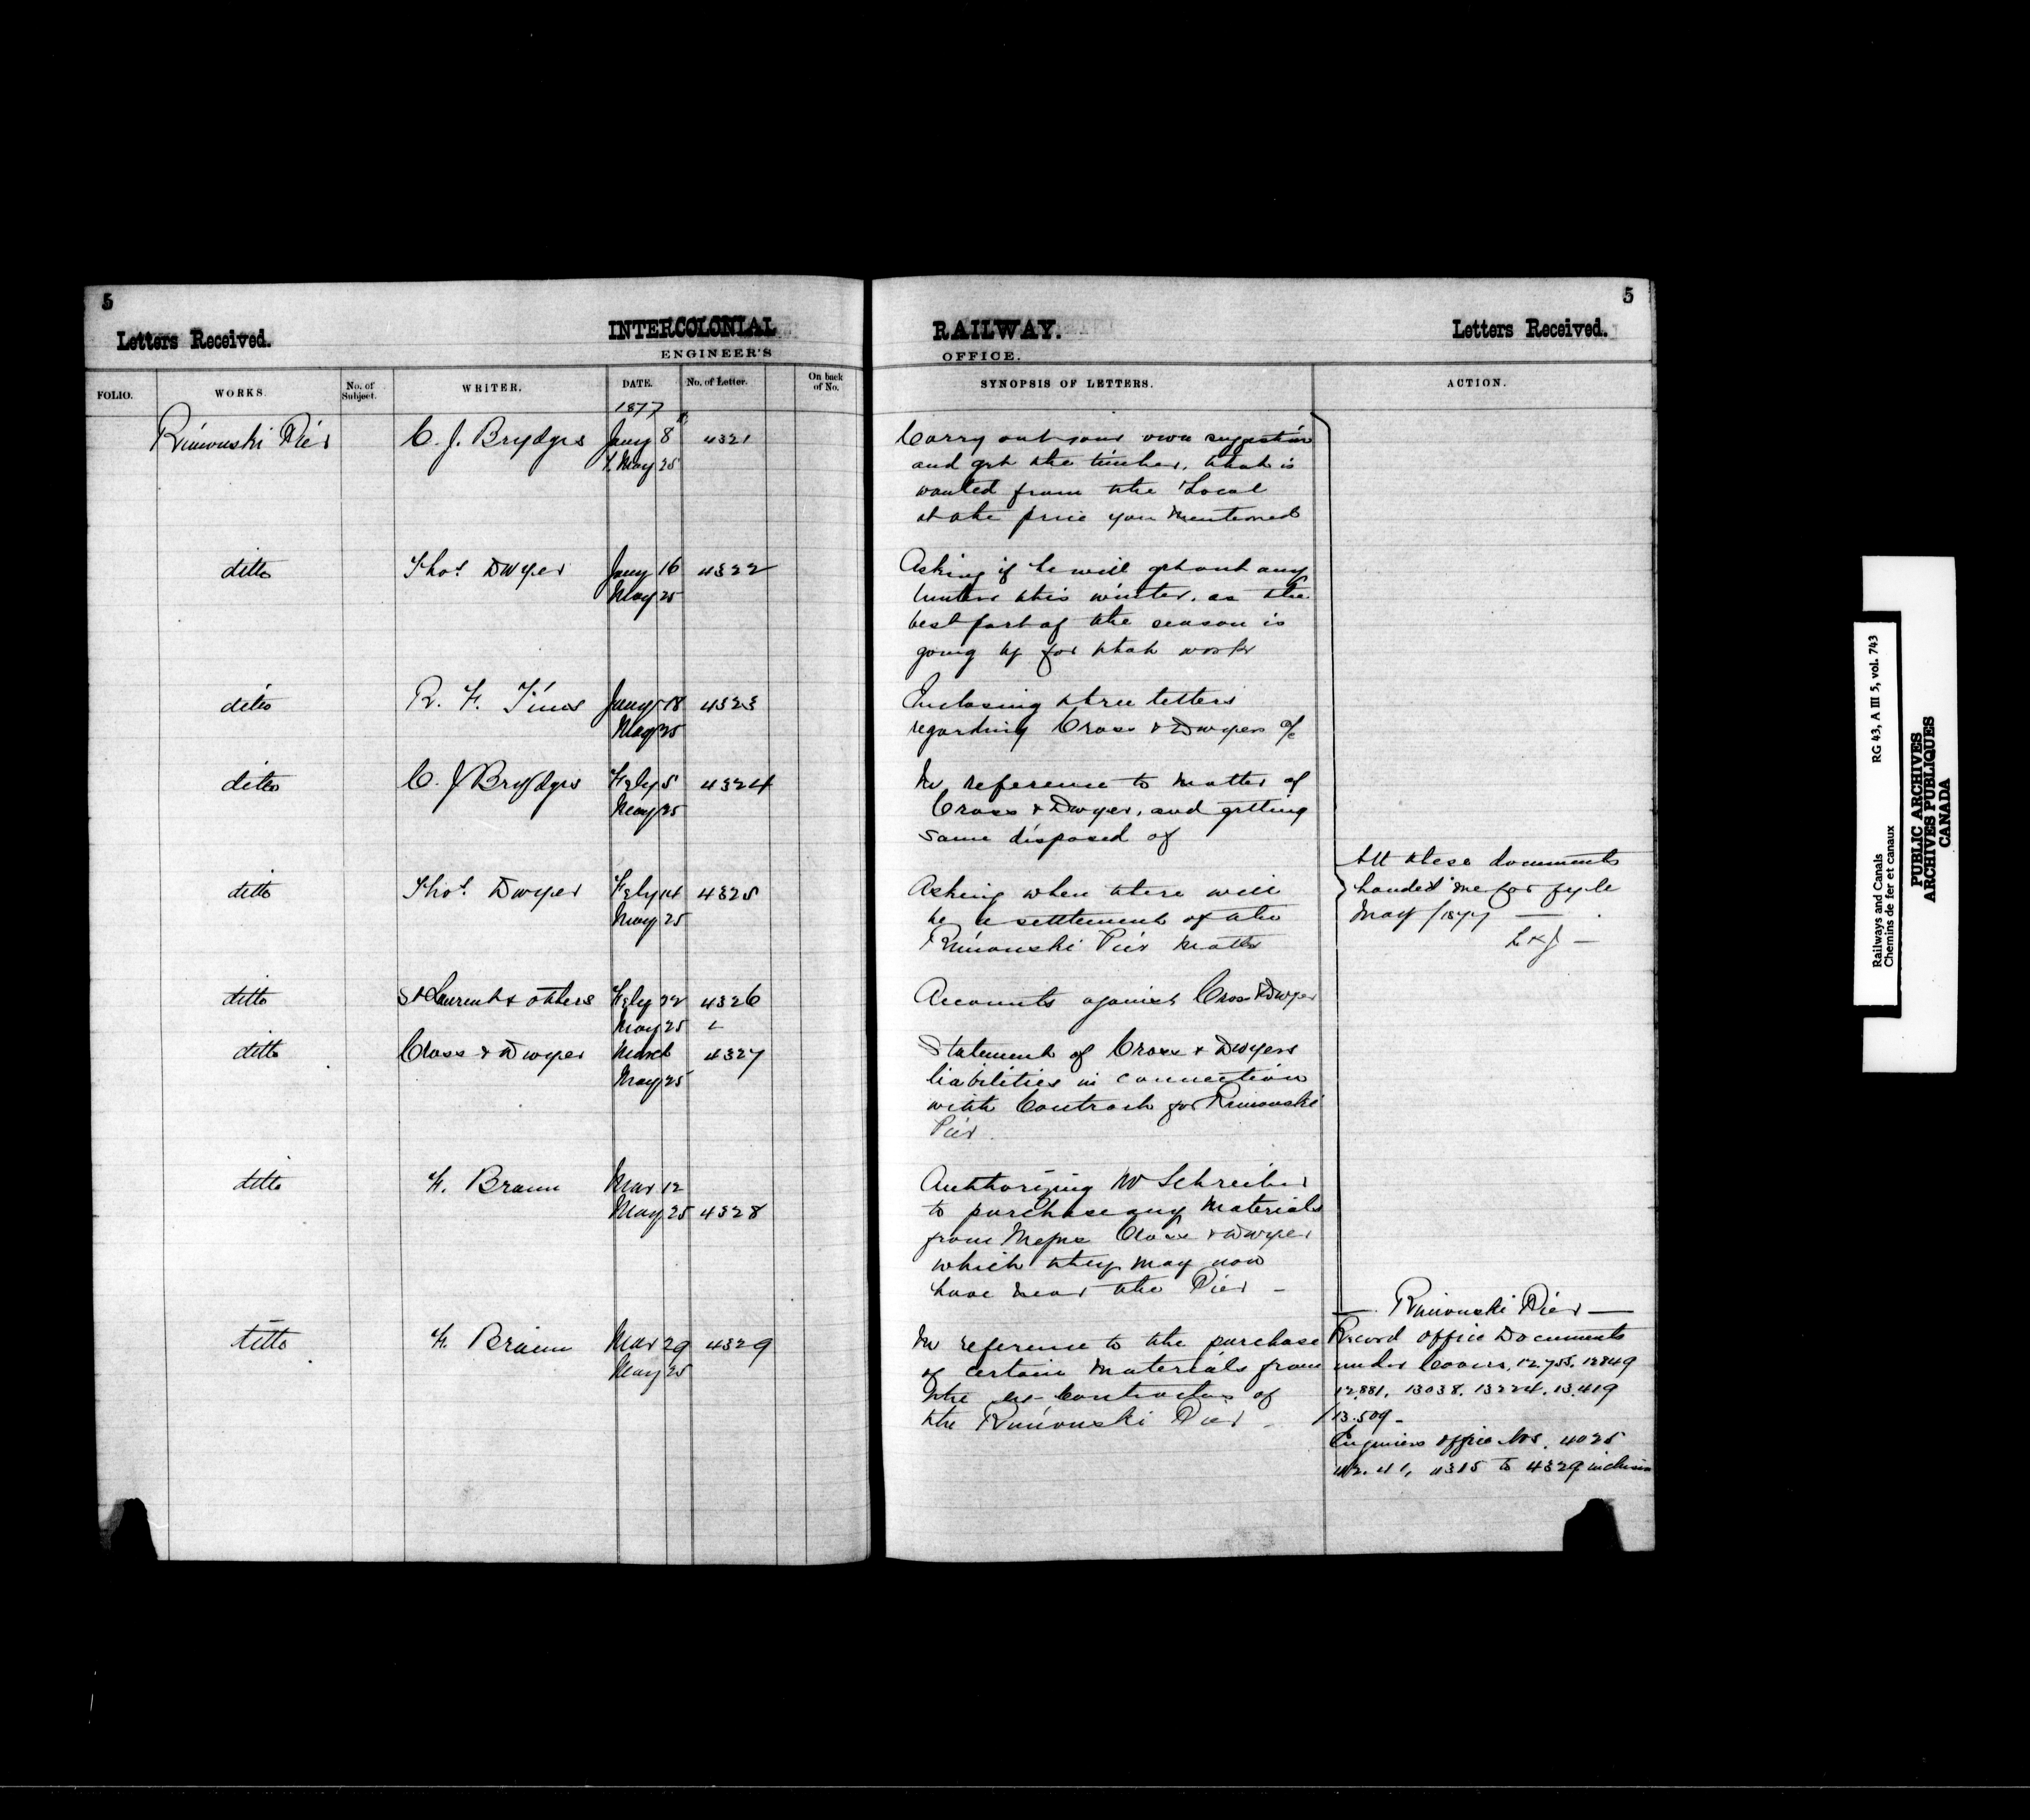 5
Letters Received.
INTERCOLONIAL
ENGINEER'S
FOLIO.
WORKS.
No. of Subject.
WRITER.
DATE.
No. of Letter.
On back of No.
1877
Rimouski Pier C. J. Brydges Jany 8 4321
May 25
ditto Thos. Dwyer Jany 16 4322
May 25
ditto R. F. Jany 18 4323
May 25
ditto C. J Brydges Feby 5 4324
May 25
ditto Thos. Dwyer Feby 14 4325
May 25
ditto St Laurent & others Feby 22 4326
May 25
ditto Cross & Dwyer March 4327
May 25
ditto F. Braun Mar 12
May 25 4328
ditto F. Braun Mar 29 4329
May 25
5
RAILWAY.
OFFICE.
Letters Received.
SYNOPSIS OF LETTERS.
ACTION.
Carry out your own suggestion
and get the timber, that is
wanted from the Local
at the price you mentioned
Asking if he will get out any
timber this winter, as the
best part of the season is
going by for that work
Enclosing three letters
regarding Cross & Dwyers a/c
In reference to matter of
Cross & Dwyer, and getting
same disposed of
Asking when there will
be a settlement of the
Rimouski Pier matter
Accounts against Cross & Dwyer
Statement of Cross & Dwyers
liabilities in connection
with Contract for Rimouski
Pier
Authorizing Mr Schreiber
to purchase any materials
from Messrs Cross & Dwyer
which they may now
have near the Pier -
In reference to the purchase
of certain materials from
the ex-Contractors of
the Rimouski Pier -
All these documents
handed me for fyle
May /1877 —
— Rimouski Pier —
Record office Documents
under Covers, 12.755. 12849
12.881. 13038. 13224. 13.419
13.509 -
Engineers office Nos. 4025
41, 4315 to 4329 inclusive
Railways and Canals
Chemins de fer et canaux
RG 43, A III 5, vol. 743
PUBLIC ARCHIVES
ARCHIVES PUBLIQUES
CANADA